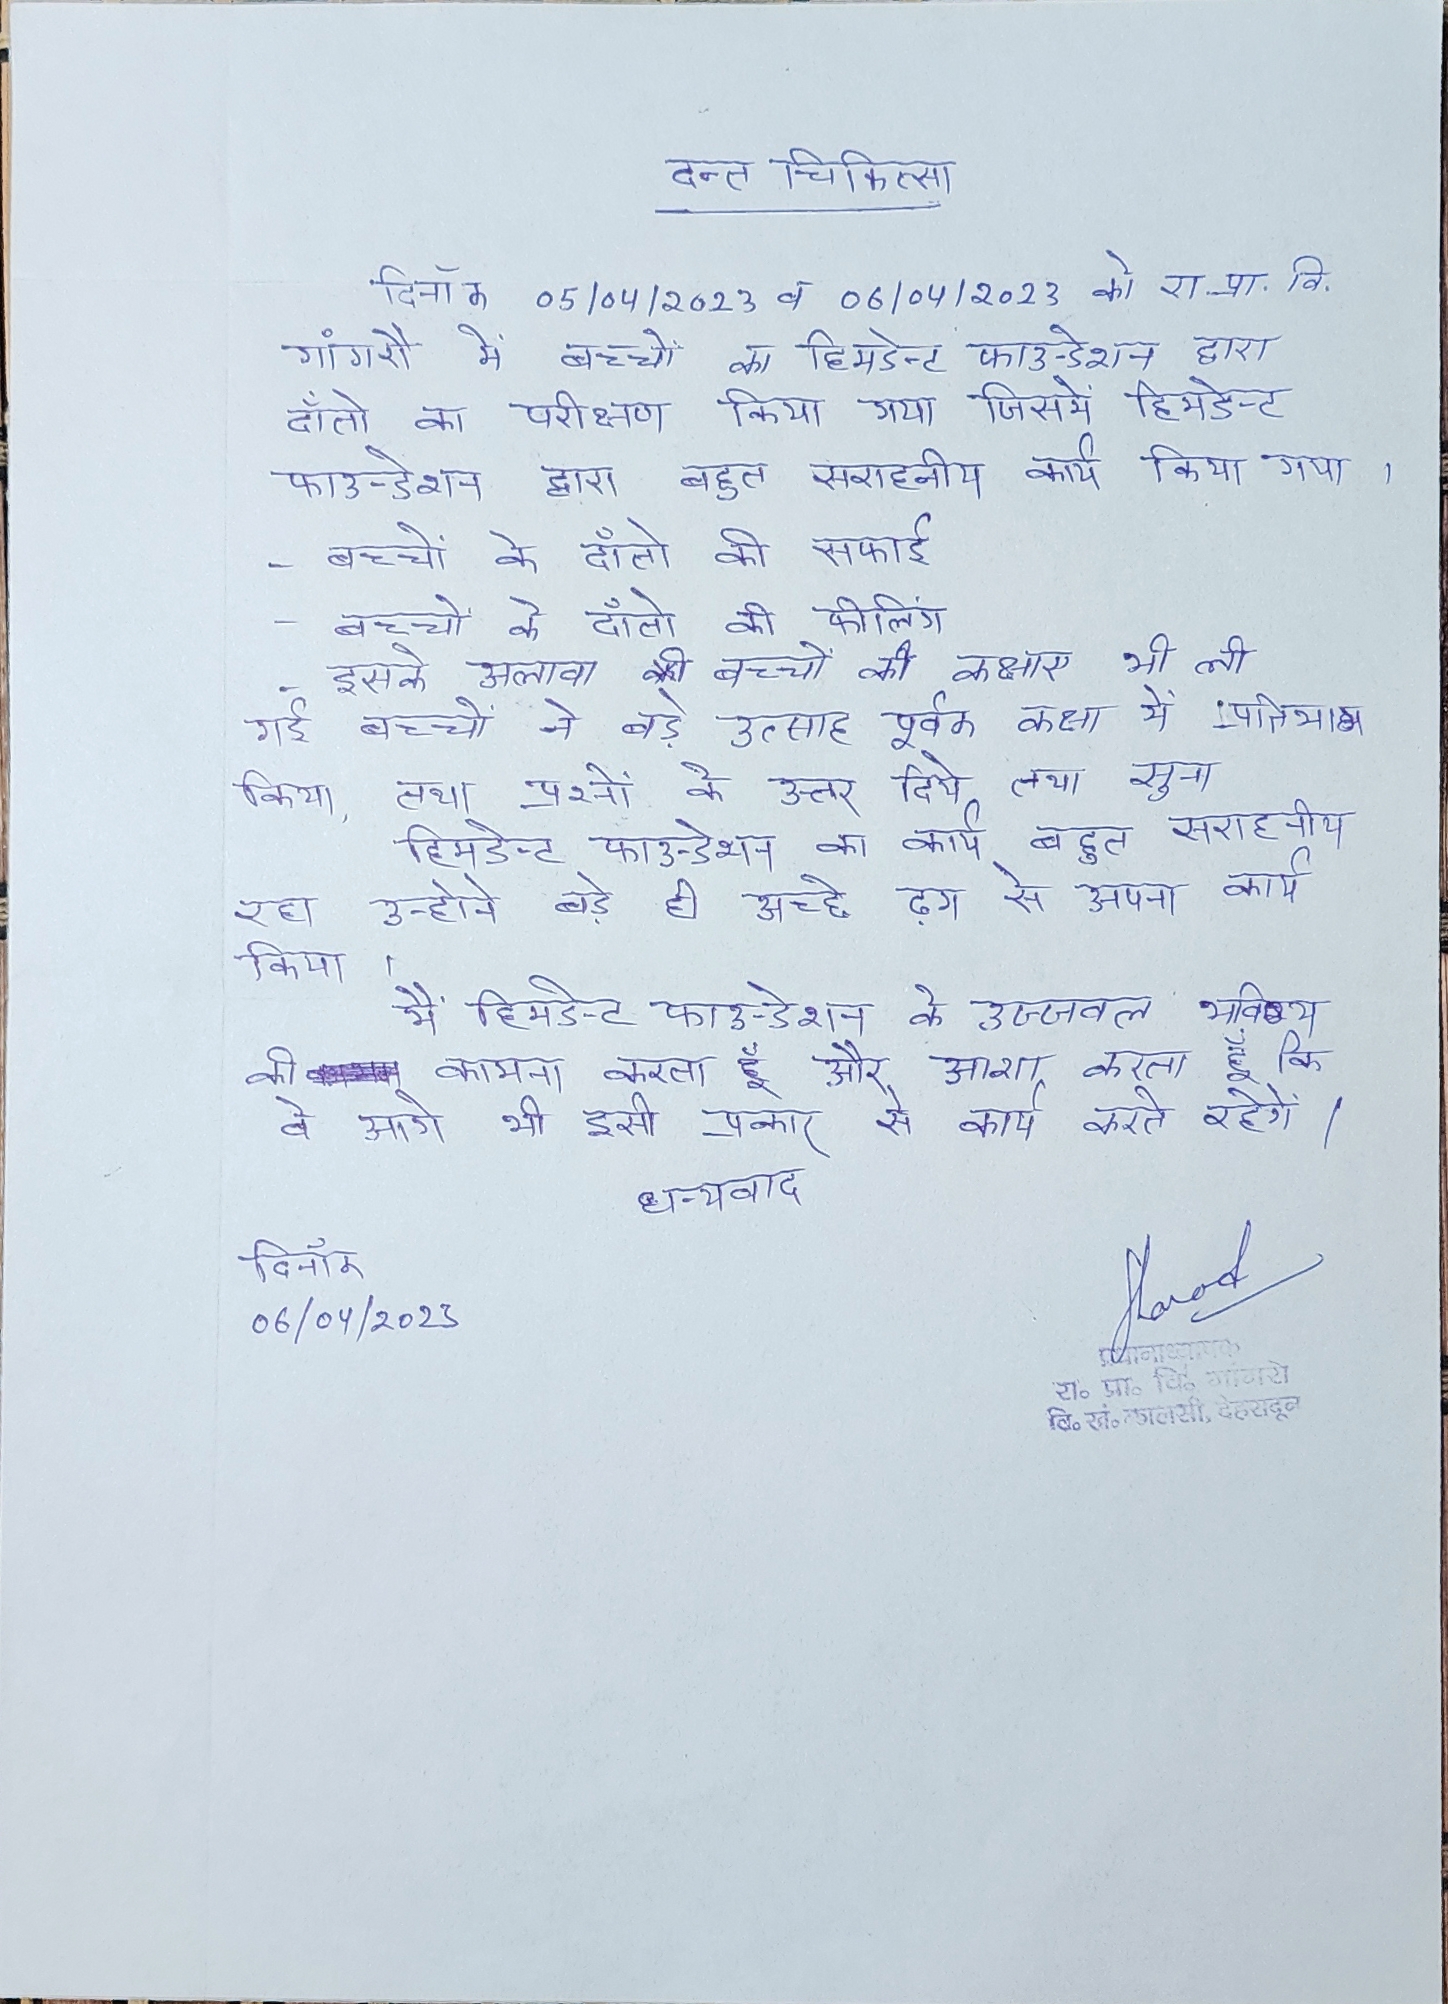 दन्त चिकित्सा
दिनाँक 05/04/2023 व 06/04/2023 को रा.प्रा.वि.
गांगरौ में बच्चों का हिमडेन्ट फाउन्डेशन द्वारा
दाँतो का परीक्षण किया गया जिसमें हिमडेन्ट
फाउन्डेशन द्वारा बहुत सराहनीय कार्य किया गया ।
- बच्चों के दाँतो की सफाई
- बच्चों के दाँतो की फीलिंग
- इसके अलावा की बच्चों की कक्षाए भी ली
गई बच्चों ने बड़े उत्साह पूर्वक कक्षा में प्रतिभाग
किया, तथा प्रश्नों के उत्तर दिये तथा सुना
हिमडेन्ट फाउन्डेशन का कार्य बहुत सराहनीय
रहा उन्होने बड़े ही अच्छे ढ़ग से अपना कार्य
किया ।
मैं हिमडेन्ट फाउन्डेशन के उज्जवल भविष्य
की कामना करता हूँ और आशा करता हूँ कि
वे आगे भी इसी प्रकार से कार्य करते रहेगें ।
धन्यवाद
दिनाँक
06/04/2023
प्रधानाध्यापक
रा० प्रा० वि० गांगरो
वि०खं०कालसी, देहरादून